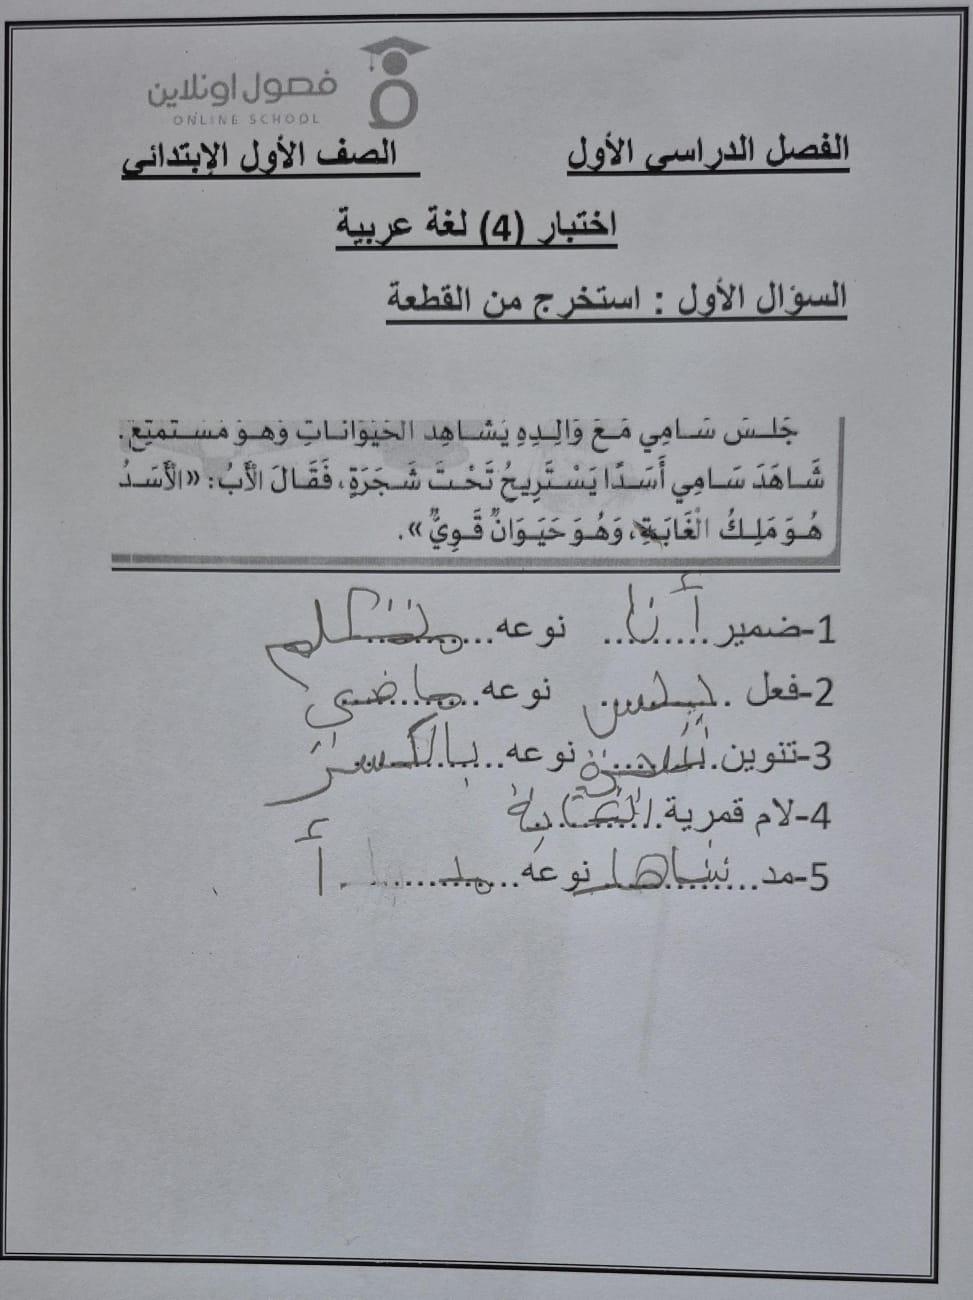 فصول اونلاين
ONLINE SCHOOL
الفصل الدراسى الأول الصف الأول الإبتدائى
اختبار (4) لغة عربية
السؤال الأول : استخرج من القطعة
جَلَسَ سَامِي مَعَ وَالِدِهِ يُشَاهِد الحَيَوَانَاتِ وَهُوَ مُسْتَمْتِع.
شَاهَدَ سَامِي أَسَدًا يَسْتَرِيحُ تَحْتَ شَجَرَةٍ، فَقَالَ الْأَبُ: «الْأَسَدُ
هُوَ مَلِكُ الْغَابَةِ، وَهُوَ حَيَوَانٌ قَوِيٌّ».
1-ضمير أنا نوعه متكلم
2-فعل جلس نوعه ماضى
3-تنوين نوعه بالكسر
4-لام قمرية الغابة
5-مد شاهد نوعه مد أ